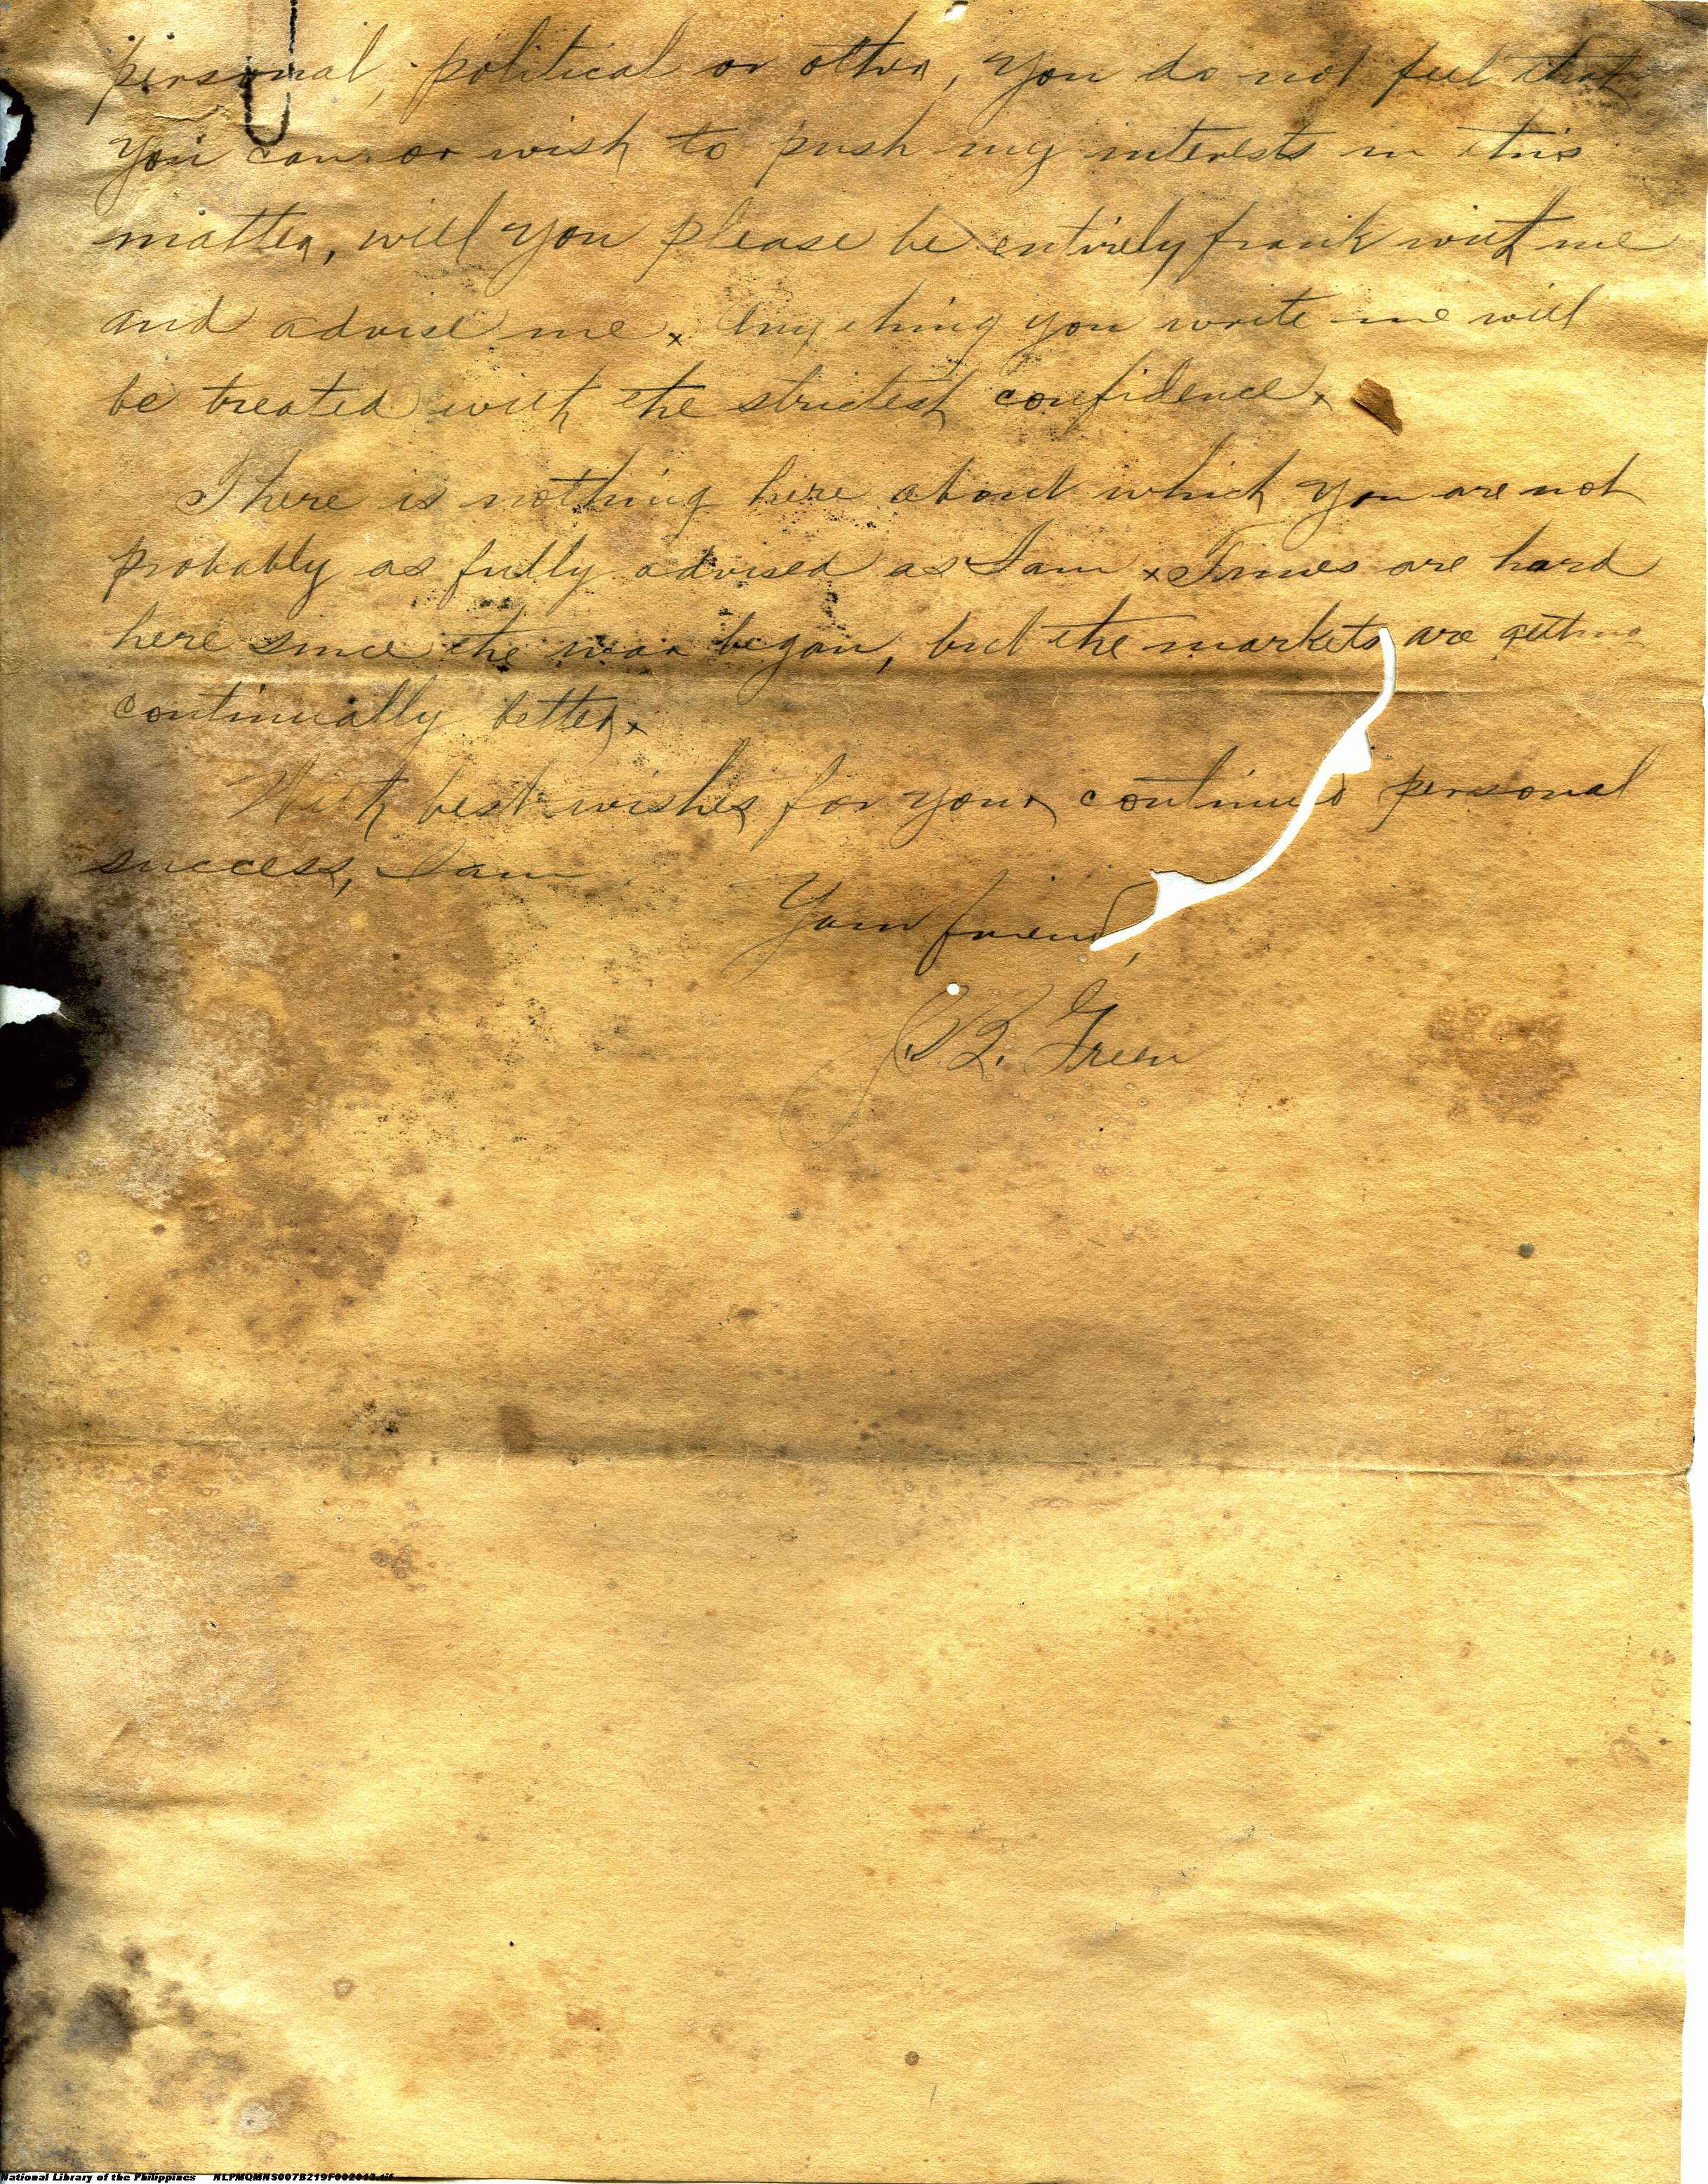 personal, political or other, you do not feel that
you can or wish to push my interests in this
matter, will you please be entirely frank with me
and advise me x Anything you write me will
be treated with the strictest confidence x
There is nothing here about which you are not
probably as fully advised as I am x Times are hard
here since the war began, but the markets are getting
continually better x
With best wishes for your continued personal
success, I am
Your friend,
J.B. Green
National Library of the Philippines NLPMQMNS007B219F002043.tif